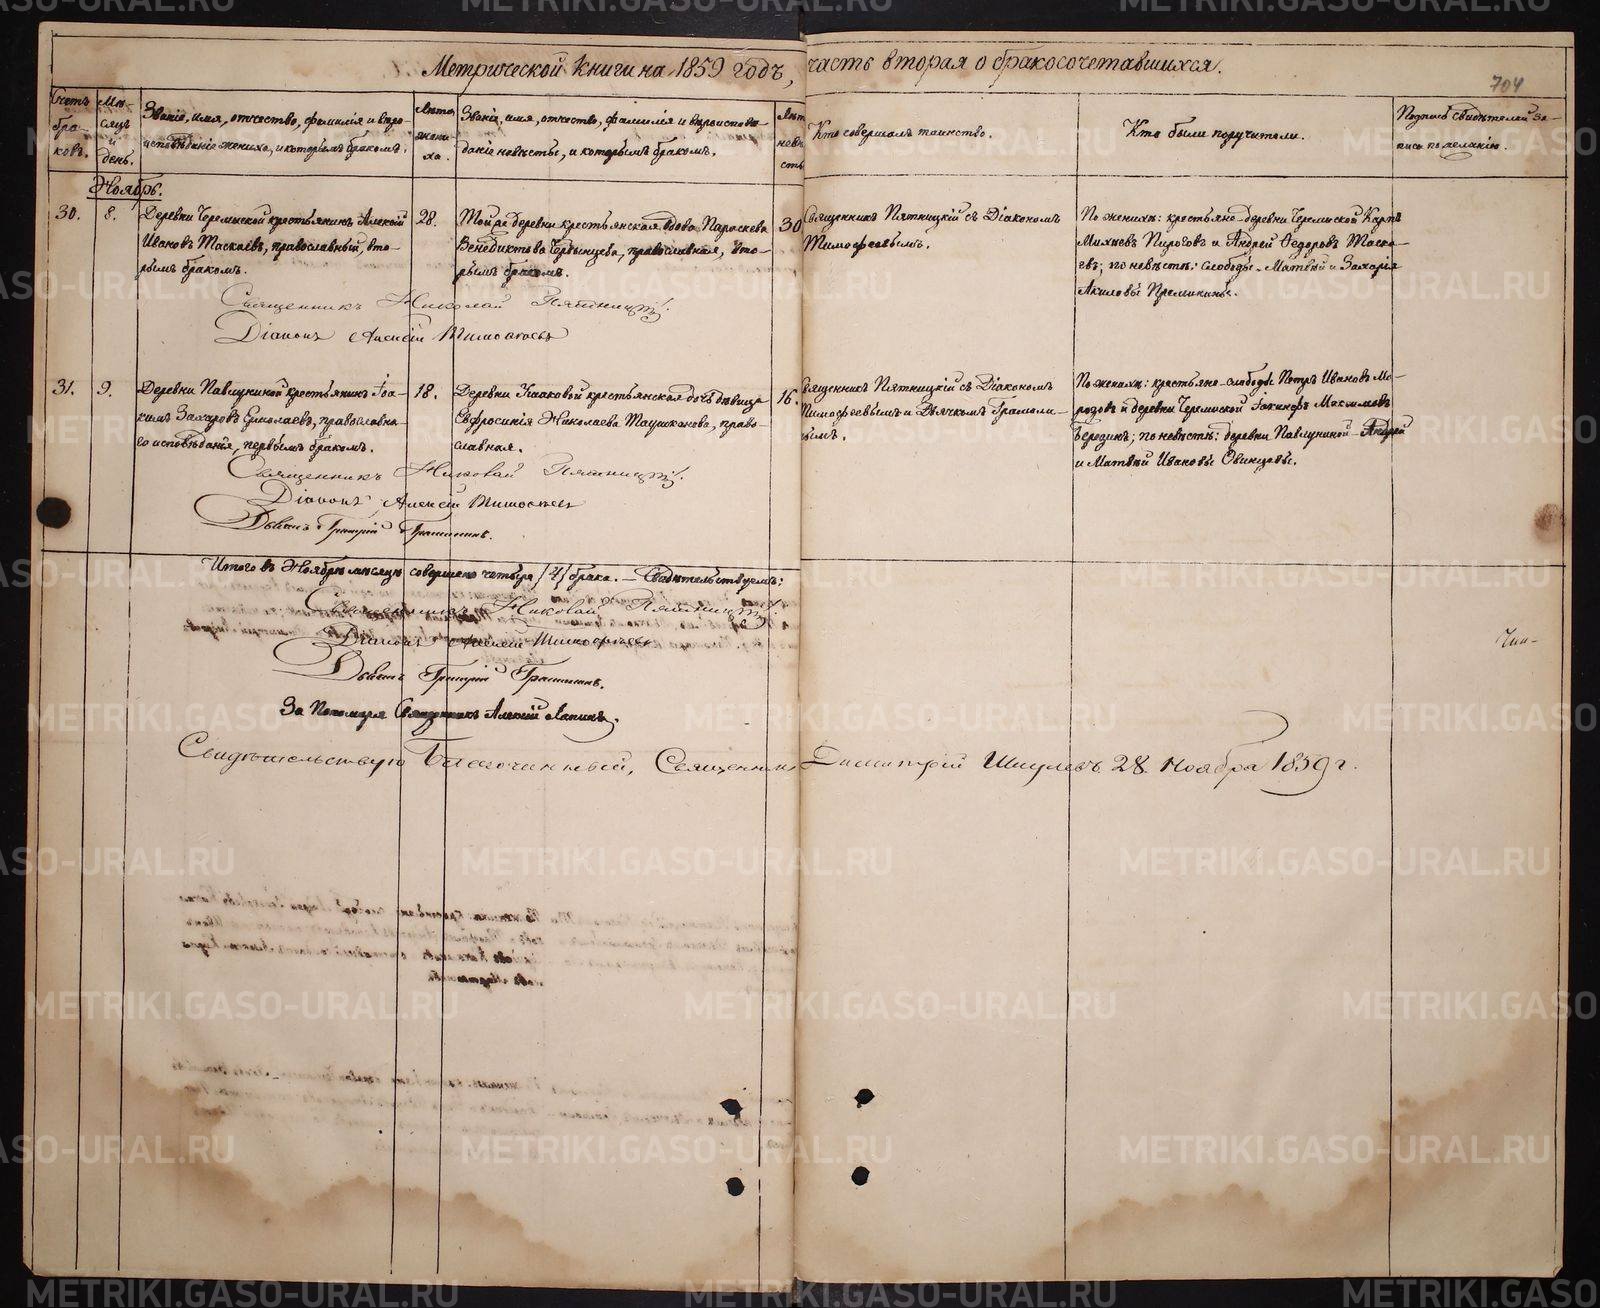 Метрической книги на 1859 годъ, часть вторая о бракосочетавшихся.
704
Счетъ браковъ.
Мѣсяцъ и день.
Званіе, имя, отчество, фамилія и вѣроисповѣданіе жениха, и которымъ бракомъ.
Лѣта жениха.
Званіе, имя, отчество, фамилія и вѣроисповѣданіе невѣсты, и которымъ бракомъ.
Лѣта невѣсты
Кто совершалъ таинство.
Кто были поручители.
Подпись свидѣтелей записи по желанію.
Ноябрь.
30.
8.
Деревни Черемиской крестьянинъ Алексѣй
Ивановъ Таскаевъ, православный, вто-
рымъ бракомъ.
28.
Той же деревни крестьянская вдова Параскева
Венедиктова, православная, вто-
рымъ бракомъ.
30
Священникъ Пятницкій съ Діакономъ
Тимофеевымъ.
По женихѣ: крестьяне деревни Черемиской Карпъ
Пироговъ и Андрей Федоровъ Таска-
евъ; по невѣстѣ: слободы Матвѣй и Захарія
Акиловы
Священникъ Николай Пятницкій.
Діаконъ Алексѣй Тимофеевъ
31.
9.
Деревни Павлушиной крестьянинъ Іоа-
кимъ Захаровъ Ермолаевъ, православна-
го исповѣданія, первымъ бракомъ.
18.
Деревни крестьянская дочь дѣвица
Евфросинія Николаева Таушканова, право-
славная.
16.
Священникъ Пятницкій съ Діакономъ
Тимофеевымъ и Дьячкомъ
По женихѣ: крестьяне слободы Петръ Ивановъ Мо-
розовъ и деревни Черемиской Іакинфъ Максимовъ
Бородинъ; по невѣстѣ: деревни Павлушиной Андрей
и Матвѣй Ивановы Овинцовы.
Священникъ Николай Пятницкій.
Діаконъ Алексѣй Тимофеевъ
Дьячекъ Григорій
Итого въ Ноябрѣ мѣсяцѣ совершено четыре /4/ брака. — Свидѣтельствуемъ:
Священникъ Николай Пятницкій
Діаконъ Алексѣй Тимофеевъ
Дьячекъ Григорій
За Пономаря Священникъ Алексій Лапинъ.
Свидѣтельствую Благочинный, Священникъ Димитрій Шишевъ 28 Ноября 1859 г.
METRIKI.GASO-URAL.RU